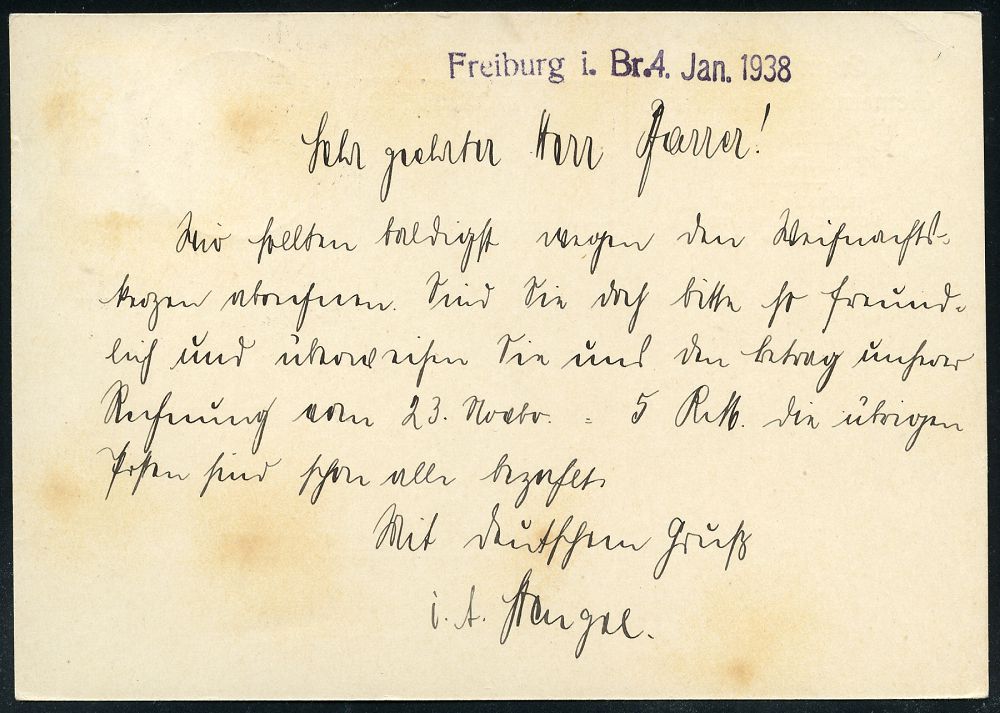 Freiburg i. Br.4. Jan. 1938
Sehr geehrter Herr Pfarrer!
Wir sollten baldigst wegen den Weihnachts-
kerzen abrechnen. Sind Sie doch bitte so freund-
lich und überweisen Sie uns den betrag unserer
Rechnung vom 23. Novbr. = 5 RM. die übrigen
Posten sind schon alle bezahlt.
Mit deutschem Gruß
i. A. Stengel.